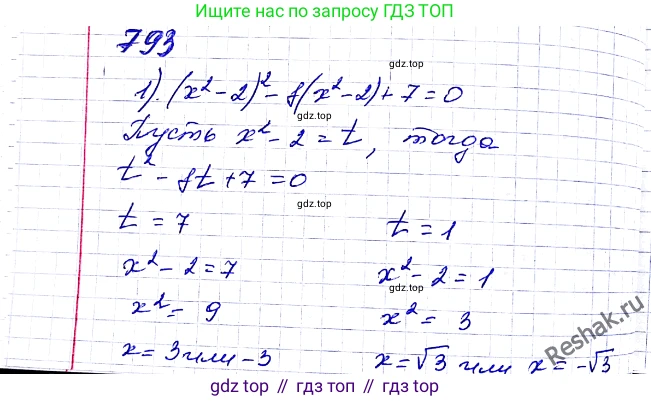 Ищите нас по запросу ГДЗ ТОП
793
gdz.top
1). (x² - 2)² - 8(x² - 2) + 7 = 0
gdz.top
Пусть x² - 2 = t, тогда
t² - 8t + 7 = 0
gdz.top
t = 7 t = 1
gdz.top
x² - 2 = 7 x² - 2 = 1
gdz.top
x² = 9 x² = 3
x = 3 или -3 x = √3 или x = -√3
Reshak.ru
gdz top // гдз топ // gdz.top